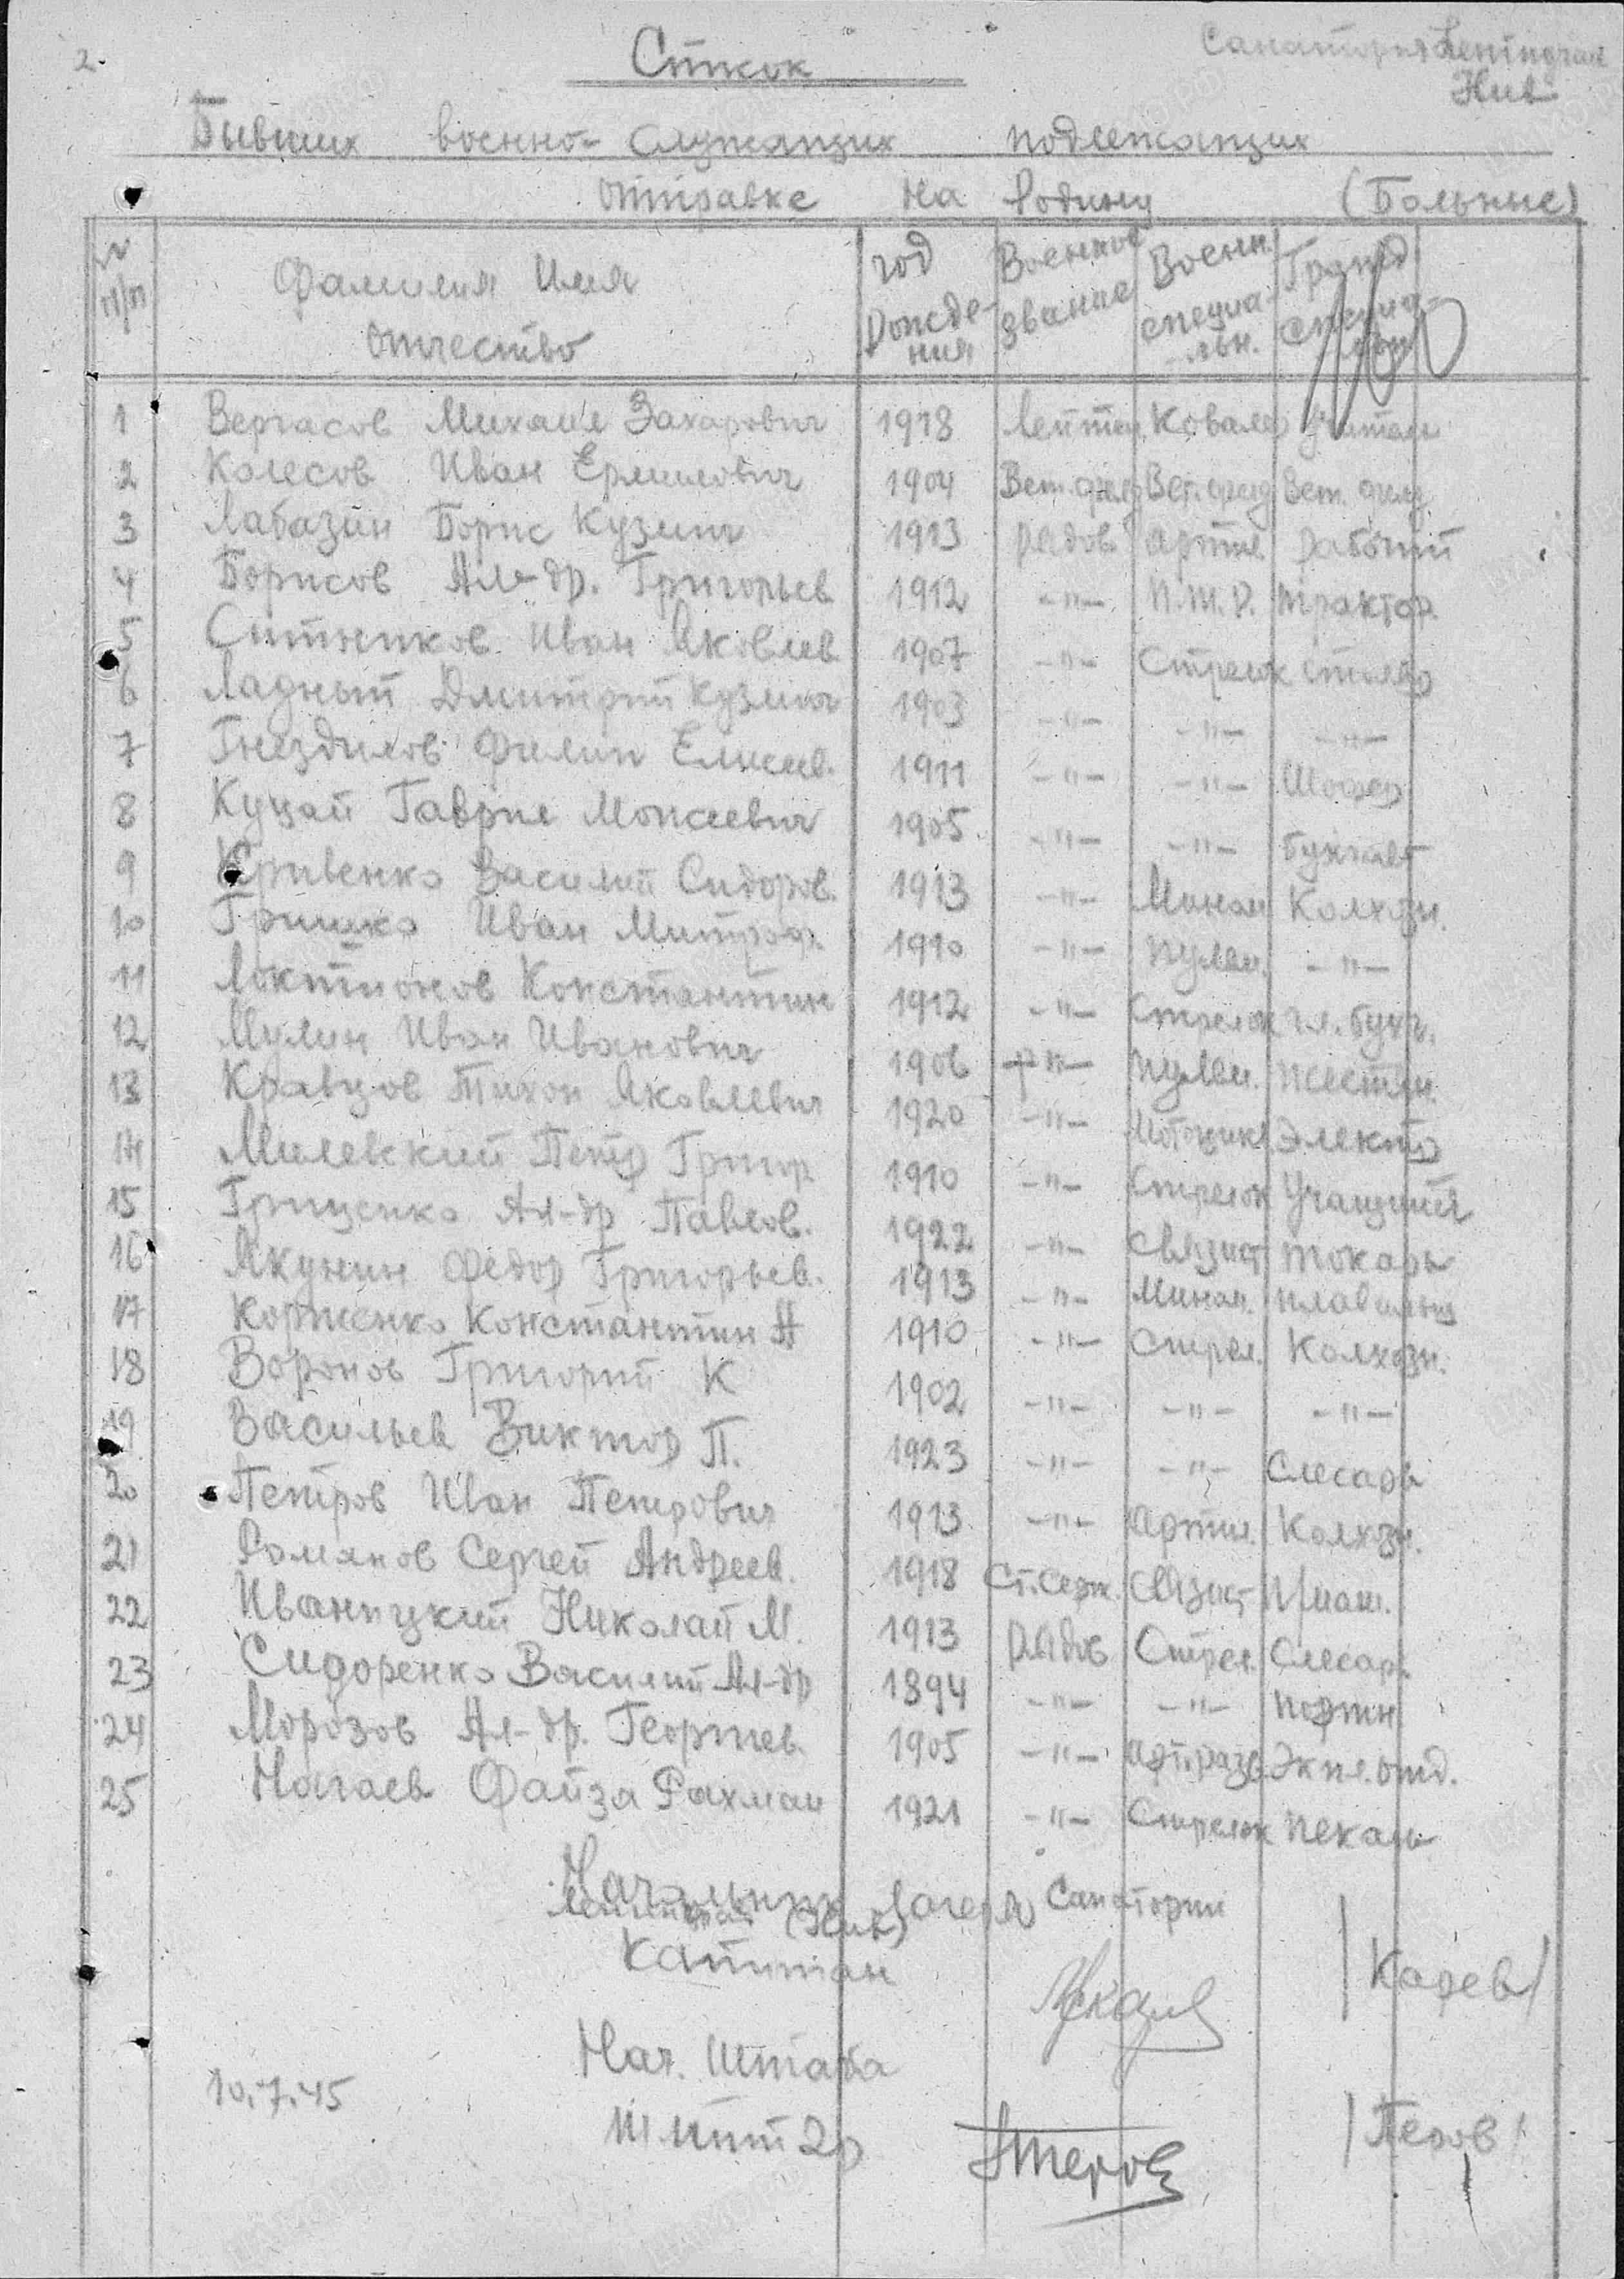 2.
Список
Санатория Leningrad
Бывших военно-служащих подлежащих
отправке на Родину (Больные)
N п/п Фамилия Имя Отчество год рождения Военное звание Военн. специа-льн. Гражд специа-
1 Вергасов Михаил Захарович 1918 Лейтен Ковале Учитель
2 Колесов Иван Ермилович 1904 Вет.фельд Вет.фельд Вет. фельд
3 Лабазин Борис Кузьмич 1913 Рядов. Артил. Рабочий
4 Борисов Ал-др. Григорьев 1912 -"- П.Т.Р. Трактор.
5 Ситников Иван Яковлев 1907 -"- Стрелок
6 Ладный Дмитрий Кузьмич 1903 -"- -"- -"-
7 Гнездилов Филип Елисеев. 1911 -"- -"- Шофер
8 Куцай Гаврил Моисеевич 1905 -"- -"- Бухгалт
9 Кривенко Василий Сидоров. 1913 -"- Мином Колхозн.
10 Гришко Иван Митроф. 1910 -"- Пулем. -"-
11 Локтионов Константин 1912 -"- Стрелок гл. бухг.
12 Мулин Иван Иванович 1906 -"- Пулем. Жестян.
13 Кравцов Тихон Яковлевич 1920 -"- Мотоцикл Электр
14 Милевский Петр Григор 1910 -"- Стрелок Учащийся
15 Гриценко Ал-др Павлов. 1922 -"- Связист Токарь
16 Якунин Федор Григорьев. 1913 -"- Мином. плавильщ
17 Корженко Константин А 1910 -"- Стрел. Колхозн.
18 Воронов Григорий К 1902 -"- -"- -"-
19 Васильев Виктор П. 1923 -"- -"- Слесарь
20 Петров Иван Петрович 1913 -"- Артил. Колхозн.
21 Романов Сергей Андреев. 1918 Ст.Серж. Связист
22 Иваницкий Николай М. 1913 Рядов Стрел. Слесарь
23 Сидоренко Василий Ал-др 1894 -"- -"- Портн
24 Морозов Ал-др. Георгиев. 1905 -"- Арт.разв.
25 Ногаев Файза Рахман 1921 -"- Стрелок Пекарь
Начальник Лагеря Санатории
Капитан /Карев/
Нач. Штаба
10.7.45
/Перов/